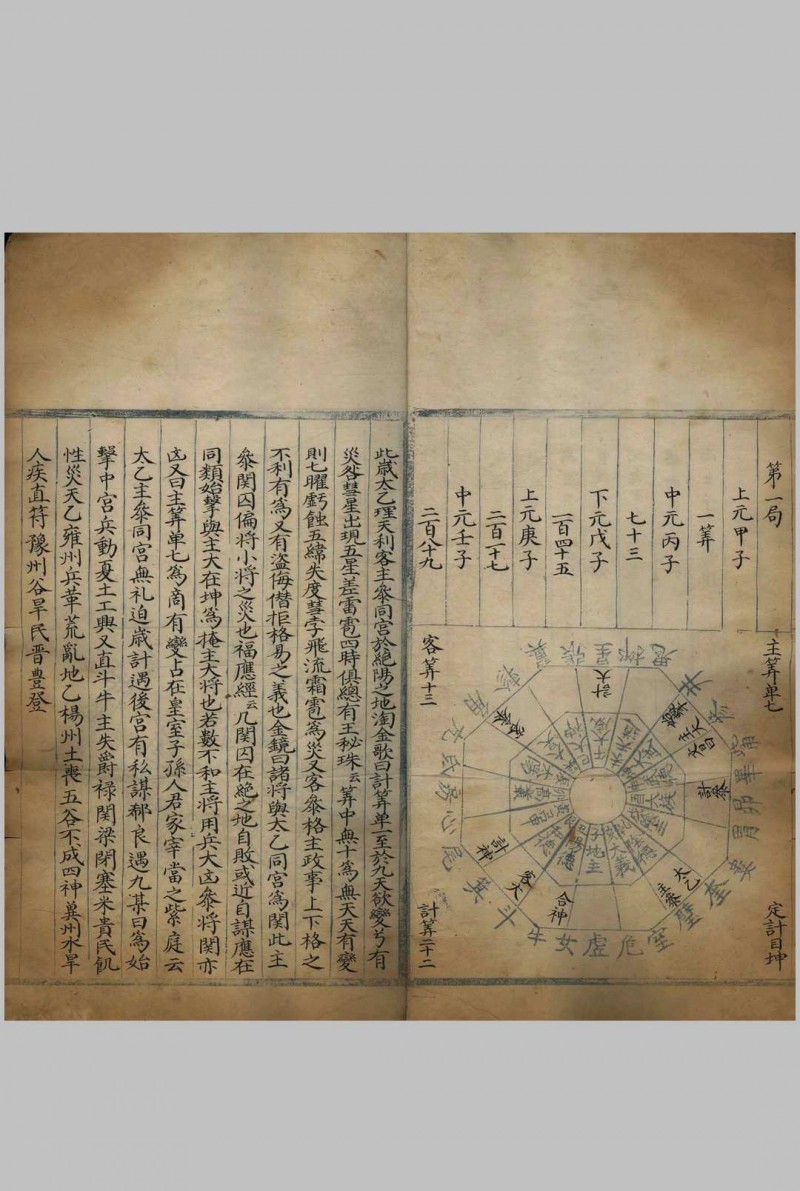 第一局
上元甲子
一筭
中元丙子
七十三
下元戊子
一百四十五
上元庚子
二百一十七
中元壬子
二百八十九
主筭單七
定計目坤
客筭十三
計筭二十二
計大
太乙
主參
合神
計神
計參
主大
客大
危
虛
女
牛
斗
箕
尾
心
房
氐
室
壁
奎
婁
胃
昴
畢
觜
井
柳
星
張
翼
此歲太乙理天利客主參同宮於絕陽之地淘金歌曰計筭单一至於九天欲變兮有
災咎彗星出現五星差雷雹四時俱總有王秘珠云筭中無十為無天天有變
則七曜虧蝕五緯失度彗孛飛流霜雹為災又客參格主政事上下格之
不利有為又有盜侮僭拒格易之義也金鏡曰諸將與太乙同宮為関此主
參関囚偏將小將之災也福應經云凡関囚在絕之地自敗或近自謀應在
同類始擊與主大在坤為掩主大將也若數不和主將用兵大凶參將関亦
凶又曰主筭单七為啇有變占在皇室子孫人君家宰當之紫庭云
太乙主參同宮無礼迫歲計遇後宮有私謀郗良遇九某曰為始
擊中宮兵動戛土工興又直斗牛主失爵祿関梁閉塞米貴民飢
性災天乙雍州兵革荒亂地乙楊州土喪五谷不成四神冀州水旱
人疾直符豫州谷旱民晋豊登